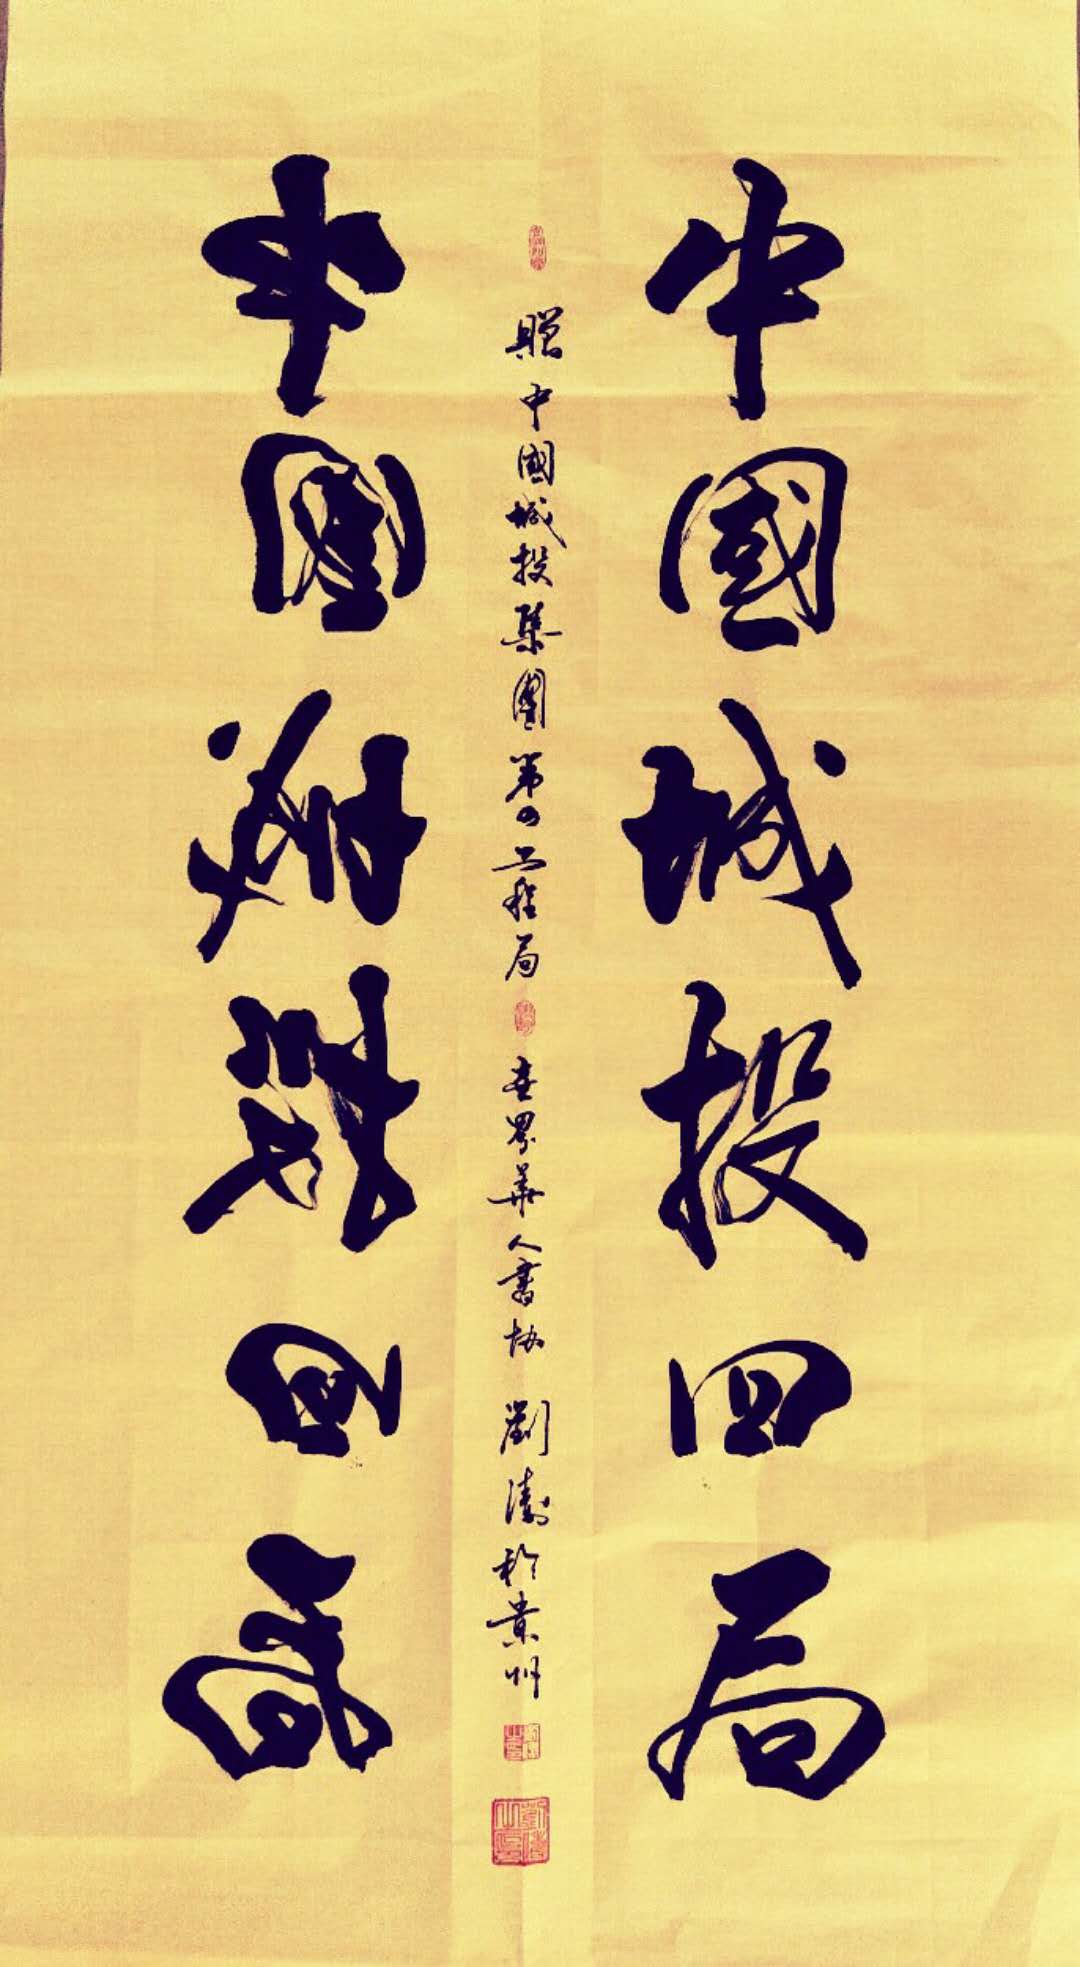 中國城投四局
贈中國城投集團第四工程局
世界華人書協 劉濤於貴州
中國城投四局